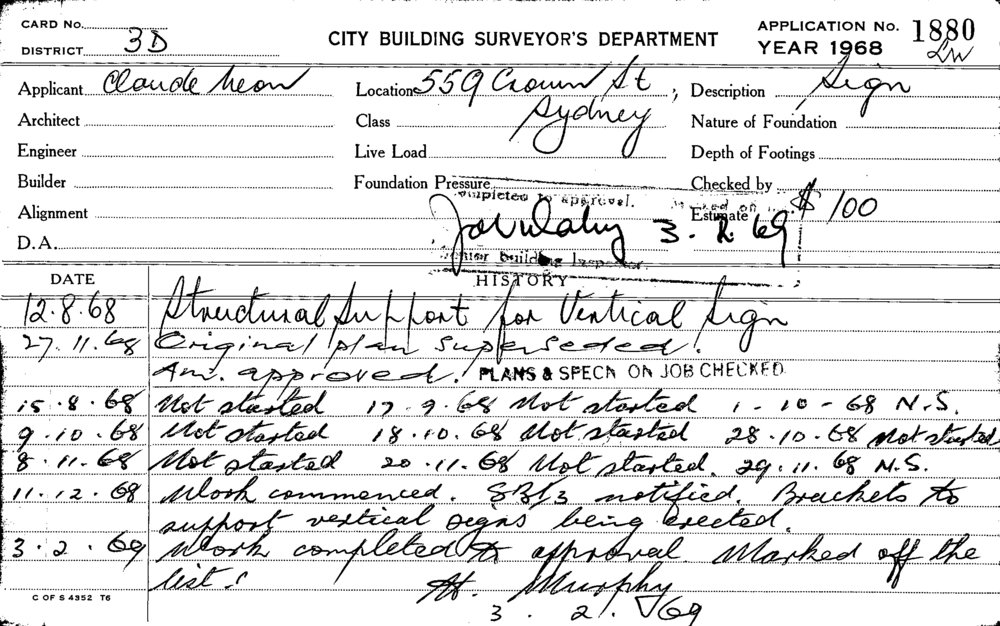 CARD No.
DISTRICT 3D
CITY BUILDING SURVEYOR'S DEPARTMENT
APPLICATION No. 1880
YEAR 1968 LW
Applicant Claude Neon
Location 559 Crown St, Sydney
Description Sign
Architect
Class
Nature of Foundation
Engineer
Live Load
Depth of Footings
Builder
Foundation Pressure
Checked by
Alignment
completed to approval.
Marked on
Estimate $100
3. 2. 69
D.A.
Senior Building Inspector
DATE HISTORY
12.8.68 Structural Support for Vertical Sign
27.11.68 Original plan superseded.
Am. approved. PLANS & SPECN ON JOB CHECKED
15.8.68 Not started 17.9.68 Not started 1-10-68 N.S.
9.10.68 Not started 18.10.68 Not started 28.10.68 Not started
8.11.68 Not started 20.11.68 Not started. 29.11.68 N.S.
11.12.68 Work commenced. SBI3 notified. Brackets to
support vertical signs being erected.
3.2.69 Work completed to approval. Marked off the
list.
H. Murphy
3.2.69
C OF S 4352 T6